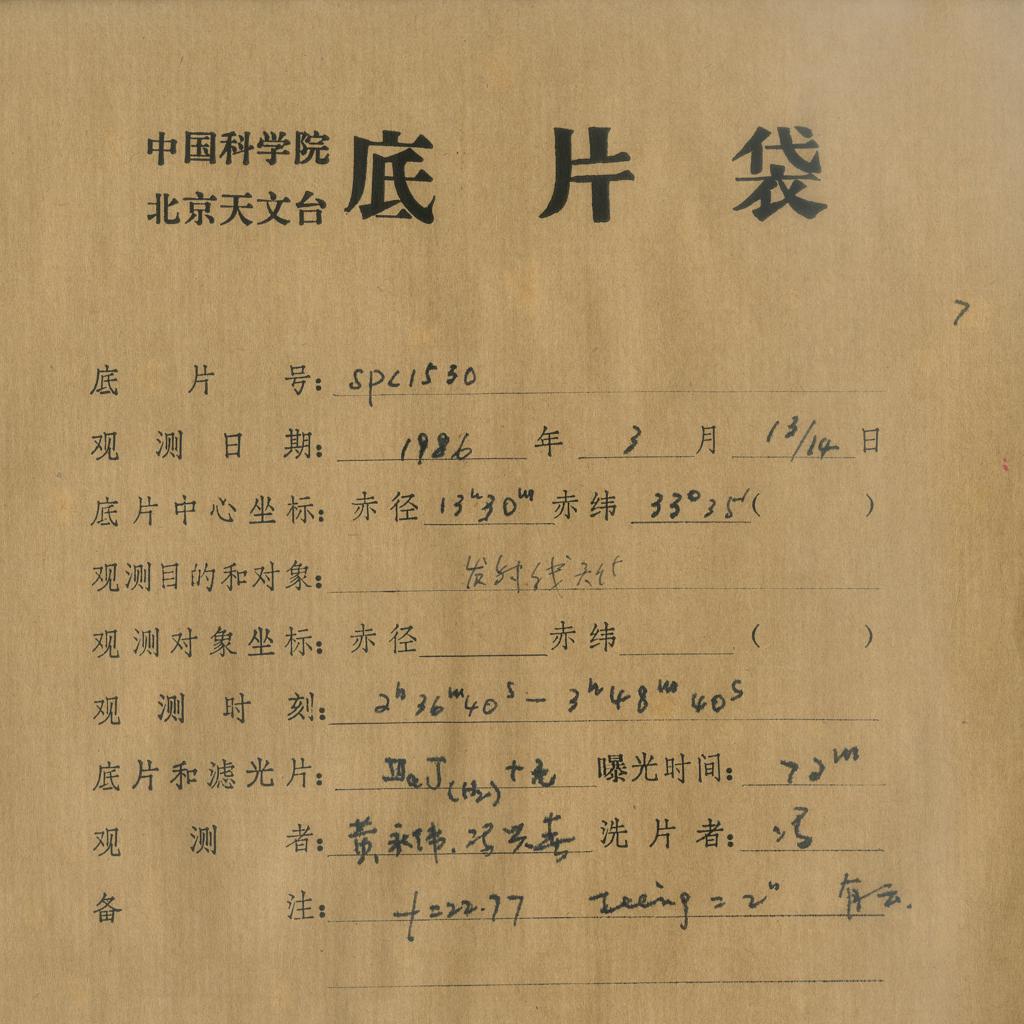 中国科学院
北京天文台
底片袋
7
底片号：spc1530
观测日期：1986年3月13/14日
底片中心坐标：赤径13ʰ30ᵐ赤纬33°35′( )
观测目的和对象：发射线天体
观测对象坐标：赤径 赤纬 ( )
观测时刻：2ʰ36ᵐ40ˢ－3ʰ48ᵐ40ˢ
底片和滤光片：ⅢaJ(H₂)+无 曝光时间：72ᵐ
观测者：黄永伟.冯兴春 洗片者：冯
备注：f=22.77 seeing=2" 有云.